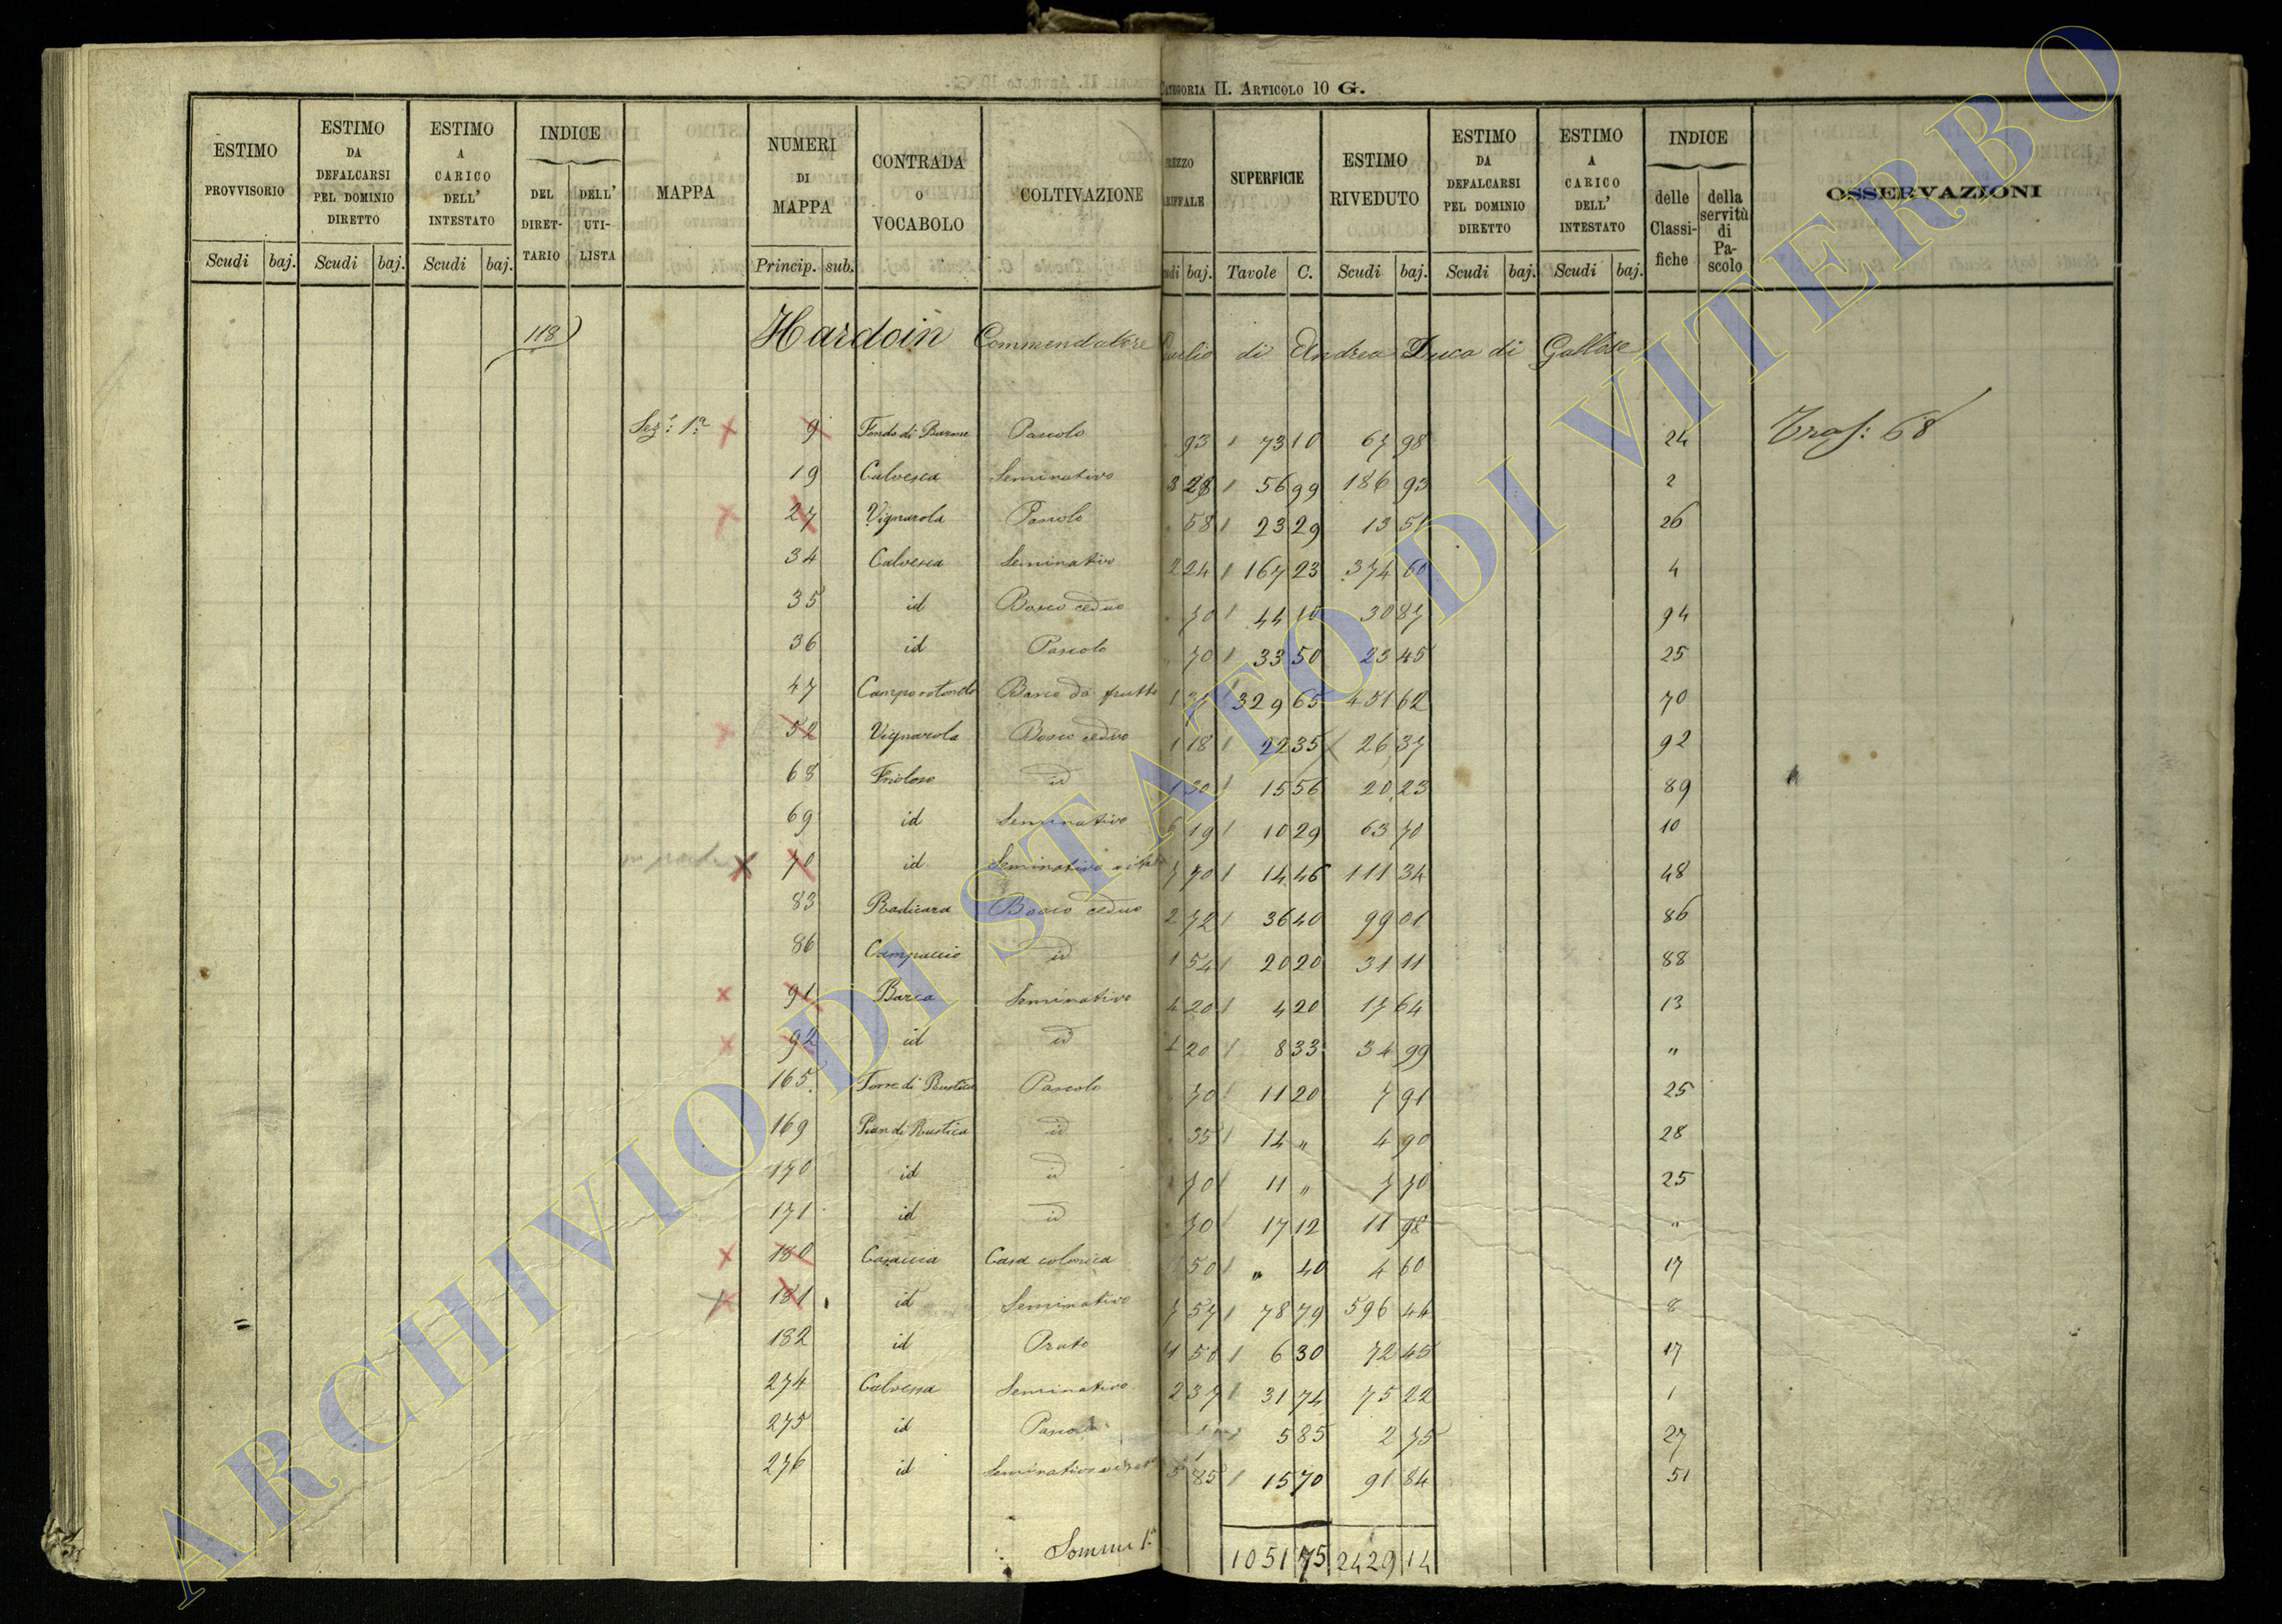 CATEGORIA II. ARTICOLO 10 G.
ESTIMO PROVVISORIO | ESTIMO DA DEFALCARSI PEL DOMINIO DIRETTO | ESTIMO A CARICO DELL' INTESTATO | INDICE DEL DIRETTARIO | DELL' UTILISTA | MAPPA | NUMERI DI MAPPA | CONTRADA O VOCABOLO | COLTIVAZIONE | SUPERFICIE | ESTIMO RIVEDUTO | ESTIMO DA DEFALCARSI PEL DOMINIO DIRETTO | ESTIMO A CARICO DELL' INTESTATO | INDICE delle Classifiche | della servitù di Pascolo | OSSERVAZIONI
Scudi baj. Scudi baj. Scudi baj. Princip. sub. baj. Tavole C. Scudi baj. Scudi baj. Scudi baj.
118 Hardoin Commendatore Giulio di Andrea Duca di Gallese
Sez: 1a 9 Fondo di Pascolo 93 73 10 67 98 24 Tras: 68
19 Calvesca Seminativo 3 28 56 99 186 93 2
27 Vignarola Pascolo 58 23 29 13 51 26
34 Calvesca Seminativo 2 24 167 23 374 60 4
35 id Bosco ceduo 70 44 10 30 87 94
36 id Pascolo 70 33 50 23 45 25
47 Camporotondo Bosco da frutto 1 37 329 65 451 62 70
52 Vignarola Bosco ceduo 1 18 22 35 26 37 92
68 id 1 30 15 56 20 23 89
69 id Seminativo 6 19 10 29 63 70 10
70 id Seminativo vitato 7 70 14 46 111 34 48
83 Radicara Bosco ceduo 2 72 36 40 99 01 86
86 Campaccio id 1 54 20 20 31 11 88
91 Barca Seminativo 4 20 4 20 17 64 13
92 id id 4 20 8 33 34 99 "
165 Torre di Rustica Pascolo 70 11 20 7 91 25
169 Pian di Rustica id 35 14 " 4 90 28
170 id id 70 11 " 7 70 25
171 id id 70 17 12 11 98 "
180 Casaccia Casa colonica 50 " 40 4 60 17
181 id Seminativo 7 57 78 79 596 44 8
182 id Prato 11 50 6 30 72 45 17
274 Calvesca Seminativo 2 37 31 74 75 22 1
275 id Pascolo 5 85 2 75 27
276 id Seminativo vitato 5 85 15 70 91 84 51
Somma 1a 1051 75 2429 14
ARCHIVIO DI STATO DI VITERBO